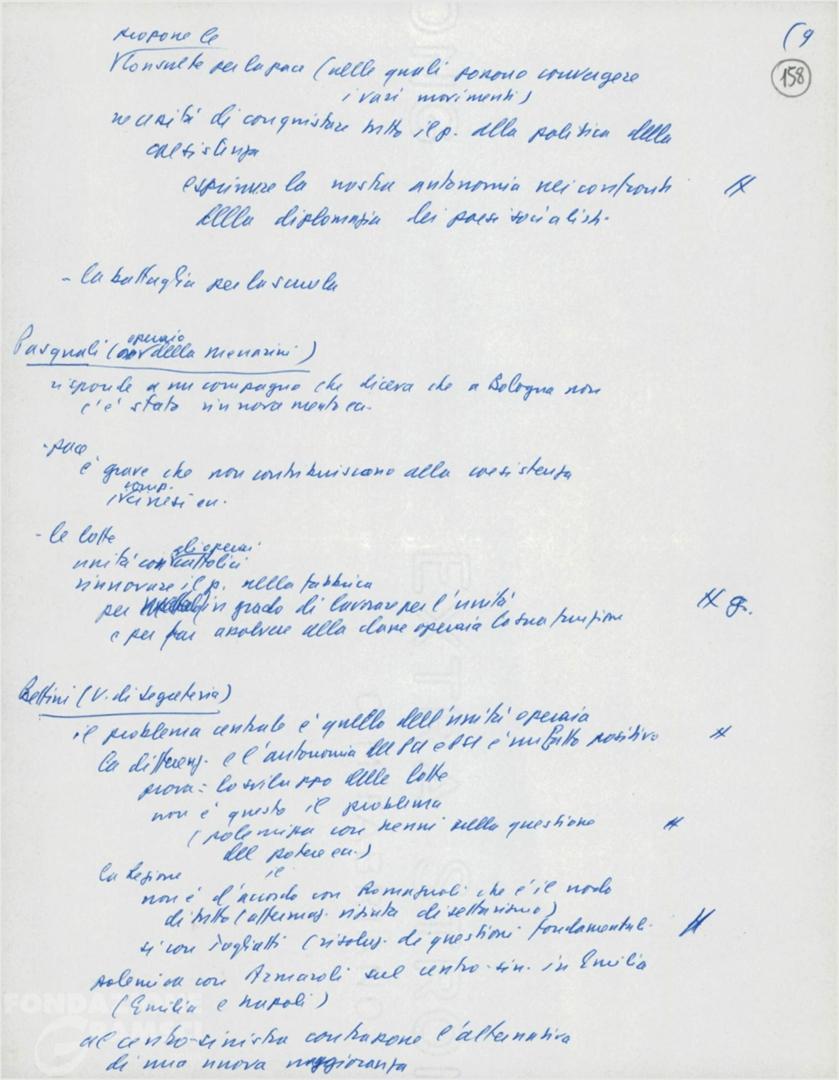 propone le (9
Consulte per la pace (nelle quali possono convergere 158
i vari movimenti)
necessità di conquistare tutto il p. alla politica della
coesistenza
esprimere la nostra autonomia nei confronti
della diplomazia dei paesi socialisti.
- la battaglia per la scuola
Pasquali (operaio della Menarini)
risponde a un compagno che diceva che a Bologna non
c'è stato rinnovamento ec.
- pace
è grave che non contribuiscano alla coesistenza
i comp. cinesi ec.
- le lotte
unità con gli operai cattolici
rinnovare il p. nella fabbrica
per in grado di lavorare per l'unità
e per far assolvere alla classe operaia la sua funzione
Bettini (V. di segreteria)
il problema centrale è quello dell'unità operaia
la differenz. e l'autonomia del PCI e PSI è un fatto positivo
prova: lo sviluppo delle lotte
non è questo il problema
(polemica con Nenni sulla questione
del potere ec.)
la Regione
non è d'accordo con Romagnoli che è il nodo
di tutto (affermaz. venata di settarismo)
si con Togliatti (risoluz. di questioni fondamentali.
polemica con Armaroli sul centro-sin. in Emilia
(Emilia e Napoli)
al centro-sinistra contrapone l'alternativa
di una nuova maggioranza
FONDAZIONE
GRAMSCI